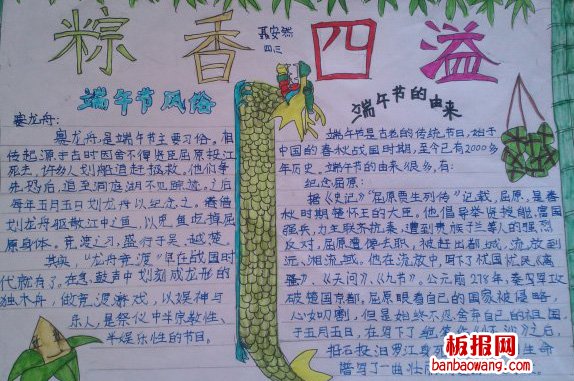 粽香四溢
聂安然
四三
端午节风俗
赛龙舟:
赛龙舟,是端午节主要习俗。相
传起源于古时因舍不得贤臣屈原投江
死去,许多人划船追赶拯救。他们争
先恐后,追至洞庭湖不见踪迹。之后
每年五月五日划龙舟以纪念之。借
划龙舟驱散江中之鱼,以免鱼吃掉屈
原身体。竞渡之习,盛行于吴、越、楚。
其实,“龙舟竞渡”早在战国时
代就有了。在急鼓声中划刻成龙形的
独木舟,做竞渡游戏,以娱神与
乐人,是祭仪中半宗教性、
半娱乐性的节目。
端午节的由来
端午节是古老的传统节日,始于
中国的春秋战国时期,至今已有2000多
年历史。端午节的由来很多,有:
纪念屈原:
据《史记》“屈原贾生列传”记载,屈原,是春
秋时期楚怀王的大臣。他倡导举贤授能,富国
强兵,力主联齐抗秦,遭到贵族子兰等人的强烈
反对,屈原遭馋去职,被赶出都城,流放到
沅、湘流域。他在流放中,写下了忧国忧民《离
骚》、《天问》、《九歌》。公元前278年,秦军
攻破楚国京都,屈原眼看自己的国家被侵略,
心如刀割,但是始终不忍舍弃自己的祖国,
于五月五日,在写下了绝笔作《怀沙》之后,
抱石投汨罗江身死 生命
谱写了一曲壮
板报网
banbaowang.com